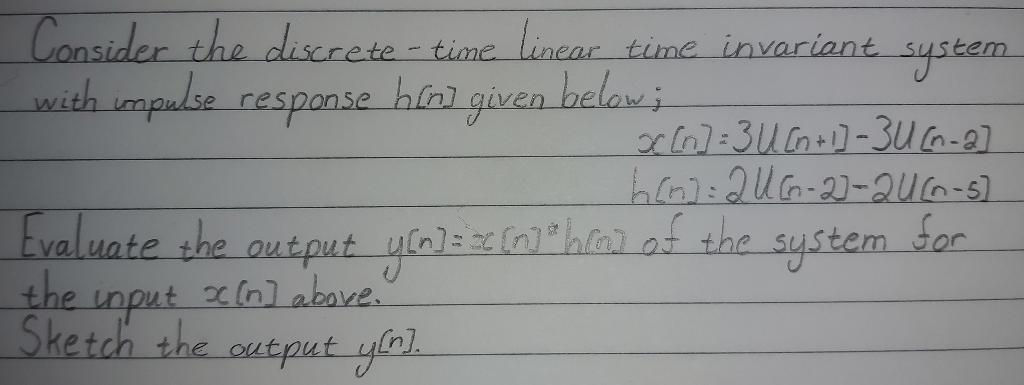 Consider the discrete-time linear time invariant system
with impulse response h[n] given below;
x[n]=3U[n+1]-3U[n-2]
h[n]=2U[n-2]-2U[n-5]
Evaluate the output y[n]=x[n]*h[n] of the system for
the input x[n] above.
Sketch the output y[n].